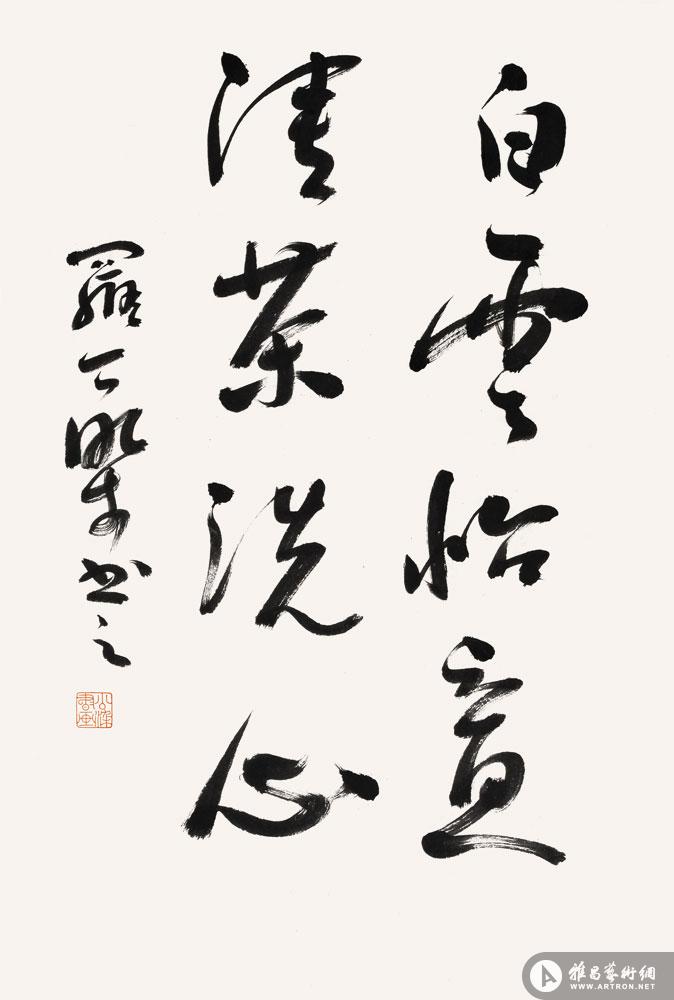 白雲怡意
清茶洗心
羅公書之
雅昌藝術網
WWW.ARTRON.NET